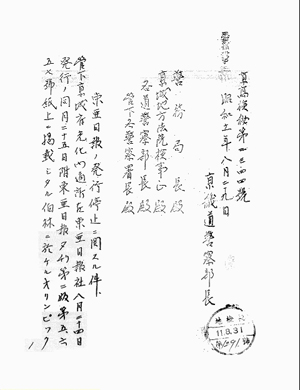 京高検秘第一三四四號
昭和十一年八月二十九日
京畿道警察部長
警務局長殿
京城地方法院検事正殿
各道警察部長殿
管下各警察署長殿
東亜日報ノ発行停止ニ関スル件
管下京城府光化門通所在東亜日報社八月二十四日
発行ノ同月二十五日附東亜日報夕刊第二版第五六
五七號紙上ニ掲載シタル伯林ニ於ケルオリンピック
11.8.31